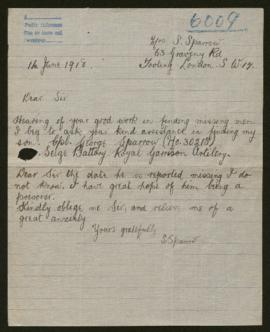 6009
Mrs S. Sparrow
63 Graveny Rd
Tooting London. S.W.17.
14 June 1918
Dear Sir
Hearing of your good work in finding missing men
I beg to ask your kind assistance in finding my
son. George Sparrow
Seige Battary Royal Garrison Artillery.
Dear Sir the date he is reported missing I do
not know, I have great hope of him being a
prisoner.
Kindly oblige me Sir, and relieve me of a
great anxiety
Yours gratefully
S. Sparrow